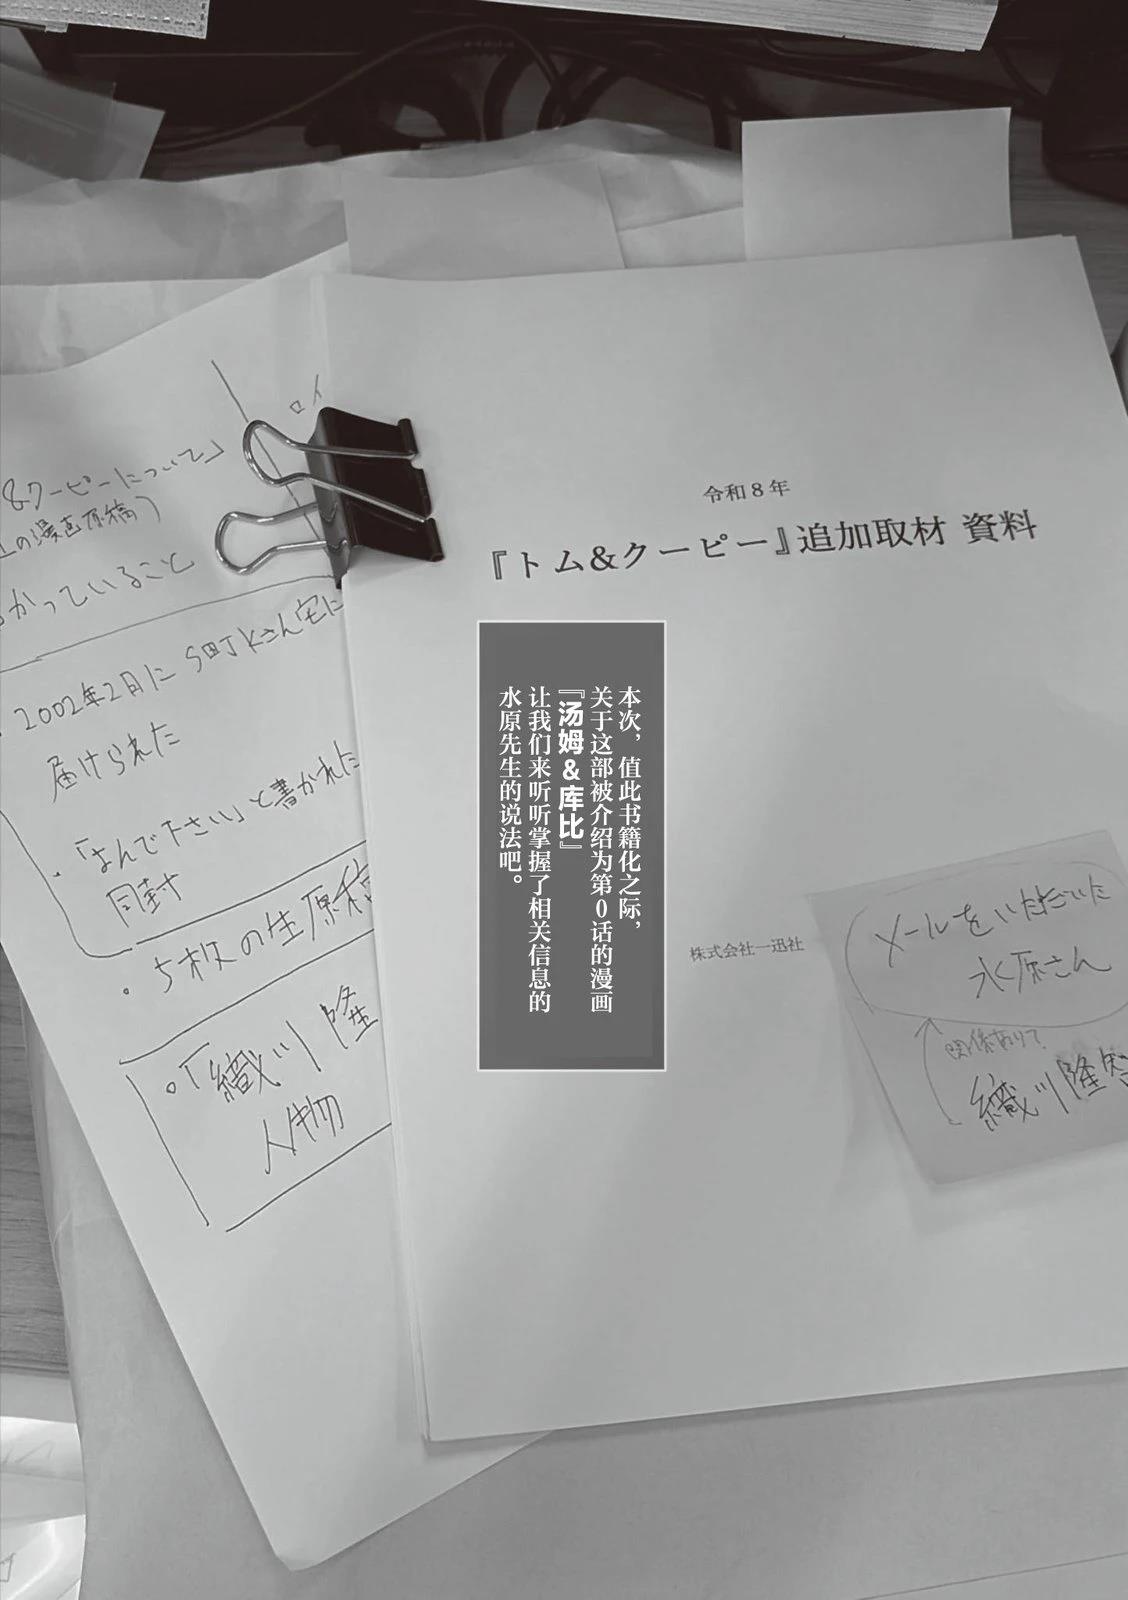 令和8年
『トム&クーピー』追加取材 資料
本次，值此书籍化之际，
关于这部被介绍为第0话的漫画
『汤姆&库比』
让我们来听听掌握了相关信息的
水原先生的说法吧。
株式会社一迅社
メールをいただいた
水原さん
関係ありて?
織川隆
ロイ
&クーピーについて」
の漫画原稿)
かっていること
2002年2月に SmJKさん宅に
届けられた
「よんで下さい」と書かれた
同封
5枚の生原稿
「織川隆
人物